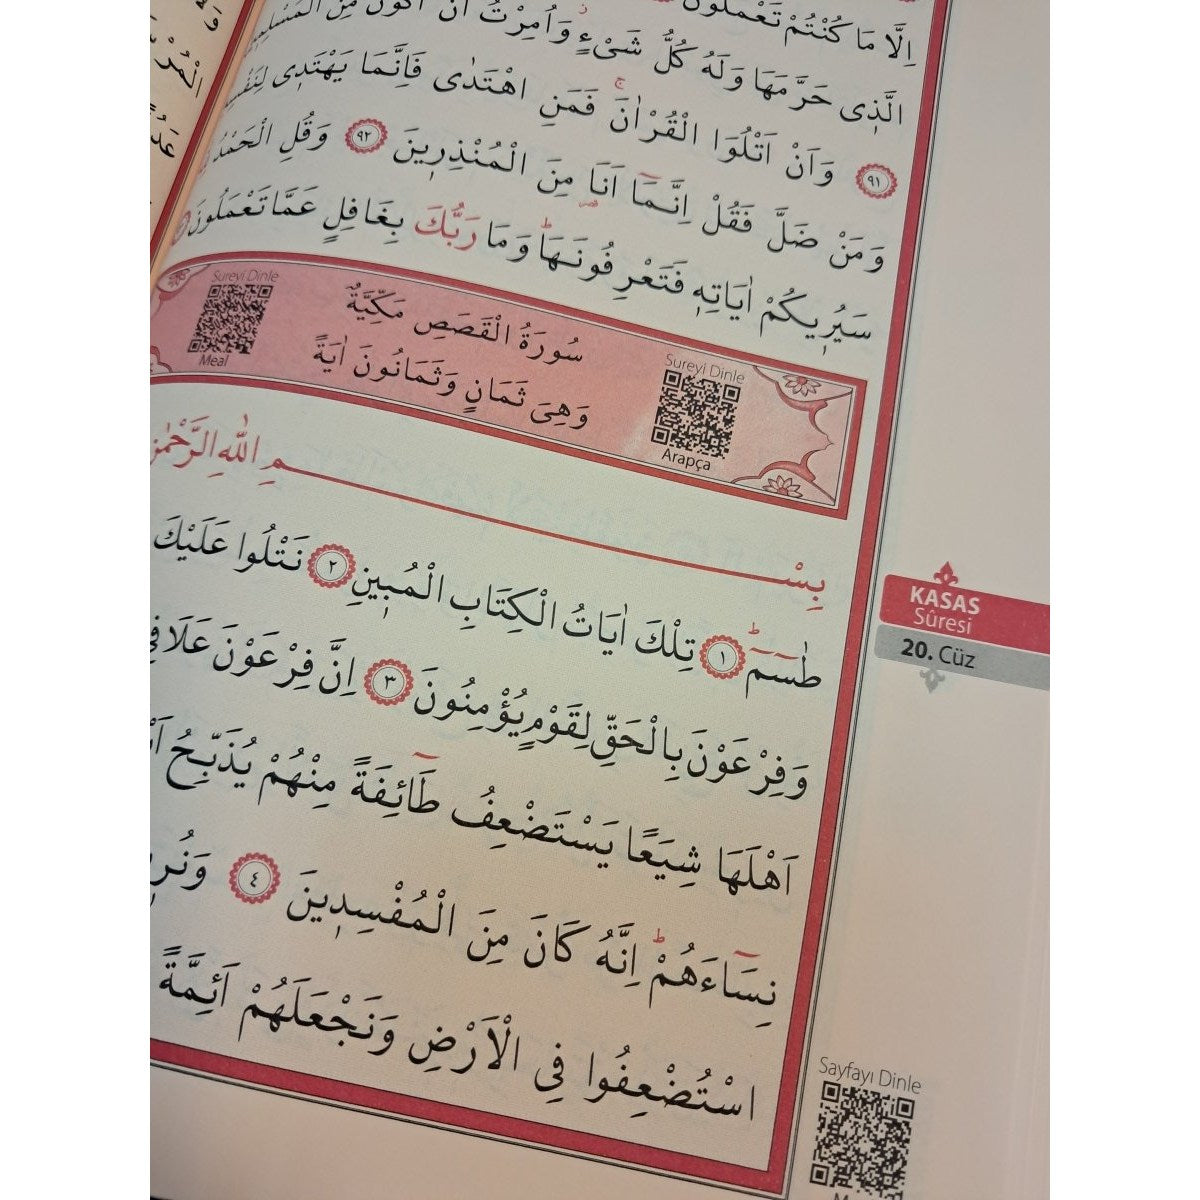 اِلَّا مَا كُنْتُمْ تَعْمَلُونَ
الَّذٖى حَرَّمَهَا وَلَهُ كُلُّ شَىْءٍ وَاُمِرْتُ اَنْ اَكُونَ مِنَ
٩١ وَاَنْ اَتْلُوَا الْقُرْاٰنَ فَمَنِ اهْتَدٰى فَاِنَّمَا يَهْتَدٖى
وَمَنْ ضَلَّ فَقُلْ اِنَّمَا اَنَا مِنَ الْمُنْذِرٖينَ ٩٢ وَقُلِ الْحَمْدُ
سَيُرٖيكُمْ اٰيَاتِهٖ فَتَعْرِفُونَهَا وَمَا رَبُّكَ بِغَافِلٍ عَمَّا تَعْمَلُونَ
Sureyi Dinle
Meal
سُورَةُ الْقَصَصِ مَكِّيَّةٌ
وَهِىَ ثَمَانٍ وَثَمَانُونَ اٰيَةً
Sureyi Dinle
Arapça
بِسْمِ اللّٰهِ الرَّحْمٰنِ
طٰسٓمٓ ١ تِلْكَ اٰيَاتُ الْكِتَابِ الْمُبٖينِ ٢ نَتْلُوا عَلَيْكَ
وَفِرْعَوْنَ بِالْحَقِّ لِقَوْمٍ يُؤْمِنُونَ ٣ اِنَّ فِرْعَوْنَ عَلَا فِى
اَهْلَهَا شِيَعًا يَسْتَضْعِفُ طَٓائِفَةً مِنْهُمْ يُذَبِّحُ
نِسَٓاءَهُمْ اِنَّهُ كَانَ مِنَ الْمُفْسِدٖينَ ٤
اسْتُضْعِفُوا فِى الْاَرْضِ وَنَجْعَلَهُمْ اَئِمَّةً
KASAS
Sûresi
20. Cüz
Sayfayı Dinle